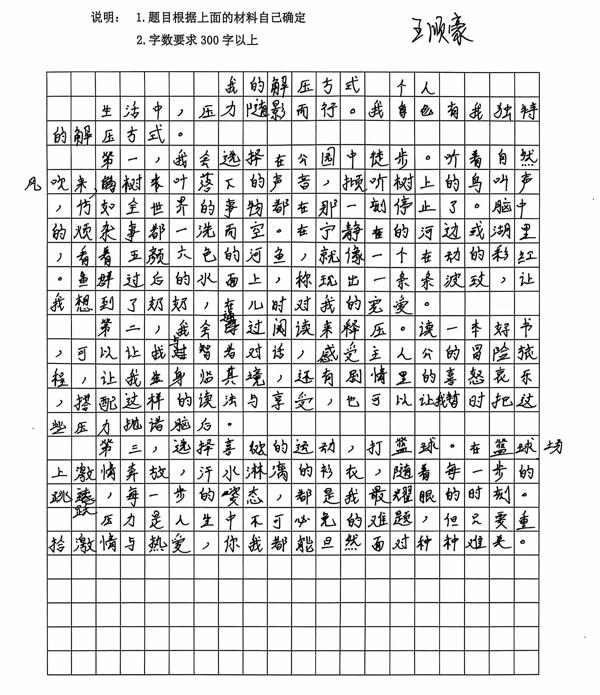 说明： 1.题目根据上面的材料自己确定
2.字数要求 300 字以上
王顺豪
我的解压方式 个人
生活中，压力随影而行。我自己有我独特
的解压方式。
第一，我会选择在公园中徒步。听着自然
风吹来，的树木叶落下的声音，倾听树上的鸟叫声
，仿如全世界的事物都在那一刻停止了。脑中
的烦来事都一洗而空。在宁静在的河边或湖里
，看着五颜六色的河鱼，就像一个在动的彩红
。鱼群过后的水面上，称现出一条条波玟，让
我想到了奶奶，在儿时对我的宠爱。
第二，我会通过阅读来释压。读一本好书
，可以让我与智者对话，感受主人公的冒险旅
程，让我坐身临其境，还有剧情里的喜怒哀乐
，搭配这样的读法与享受，也可以让我暂时把这
些压力抛诺脑后。
第三，选择喜欢的运动，打篮球。在篮球场
上激情奔放，汗水淋漓的衫衣，随着每一步的
跳跃，每一步的姿态，都是我最耀眼的时刻。
压力是人生中不可必免的难题，但只要重
拾激情与热爱，你我都能旦然面对种种难关。